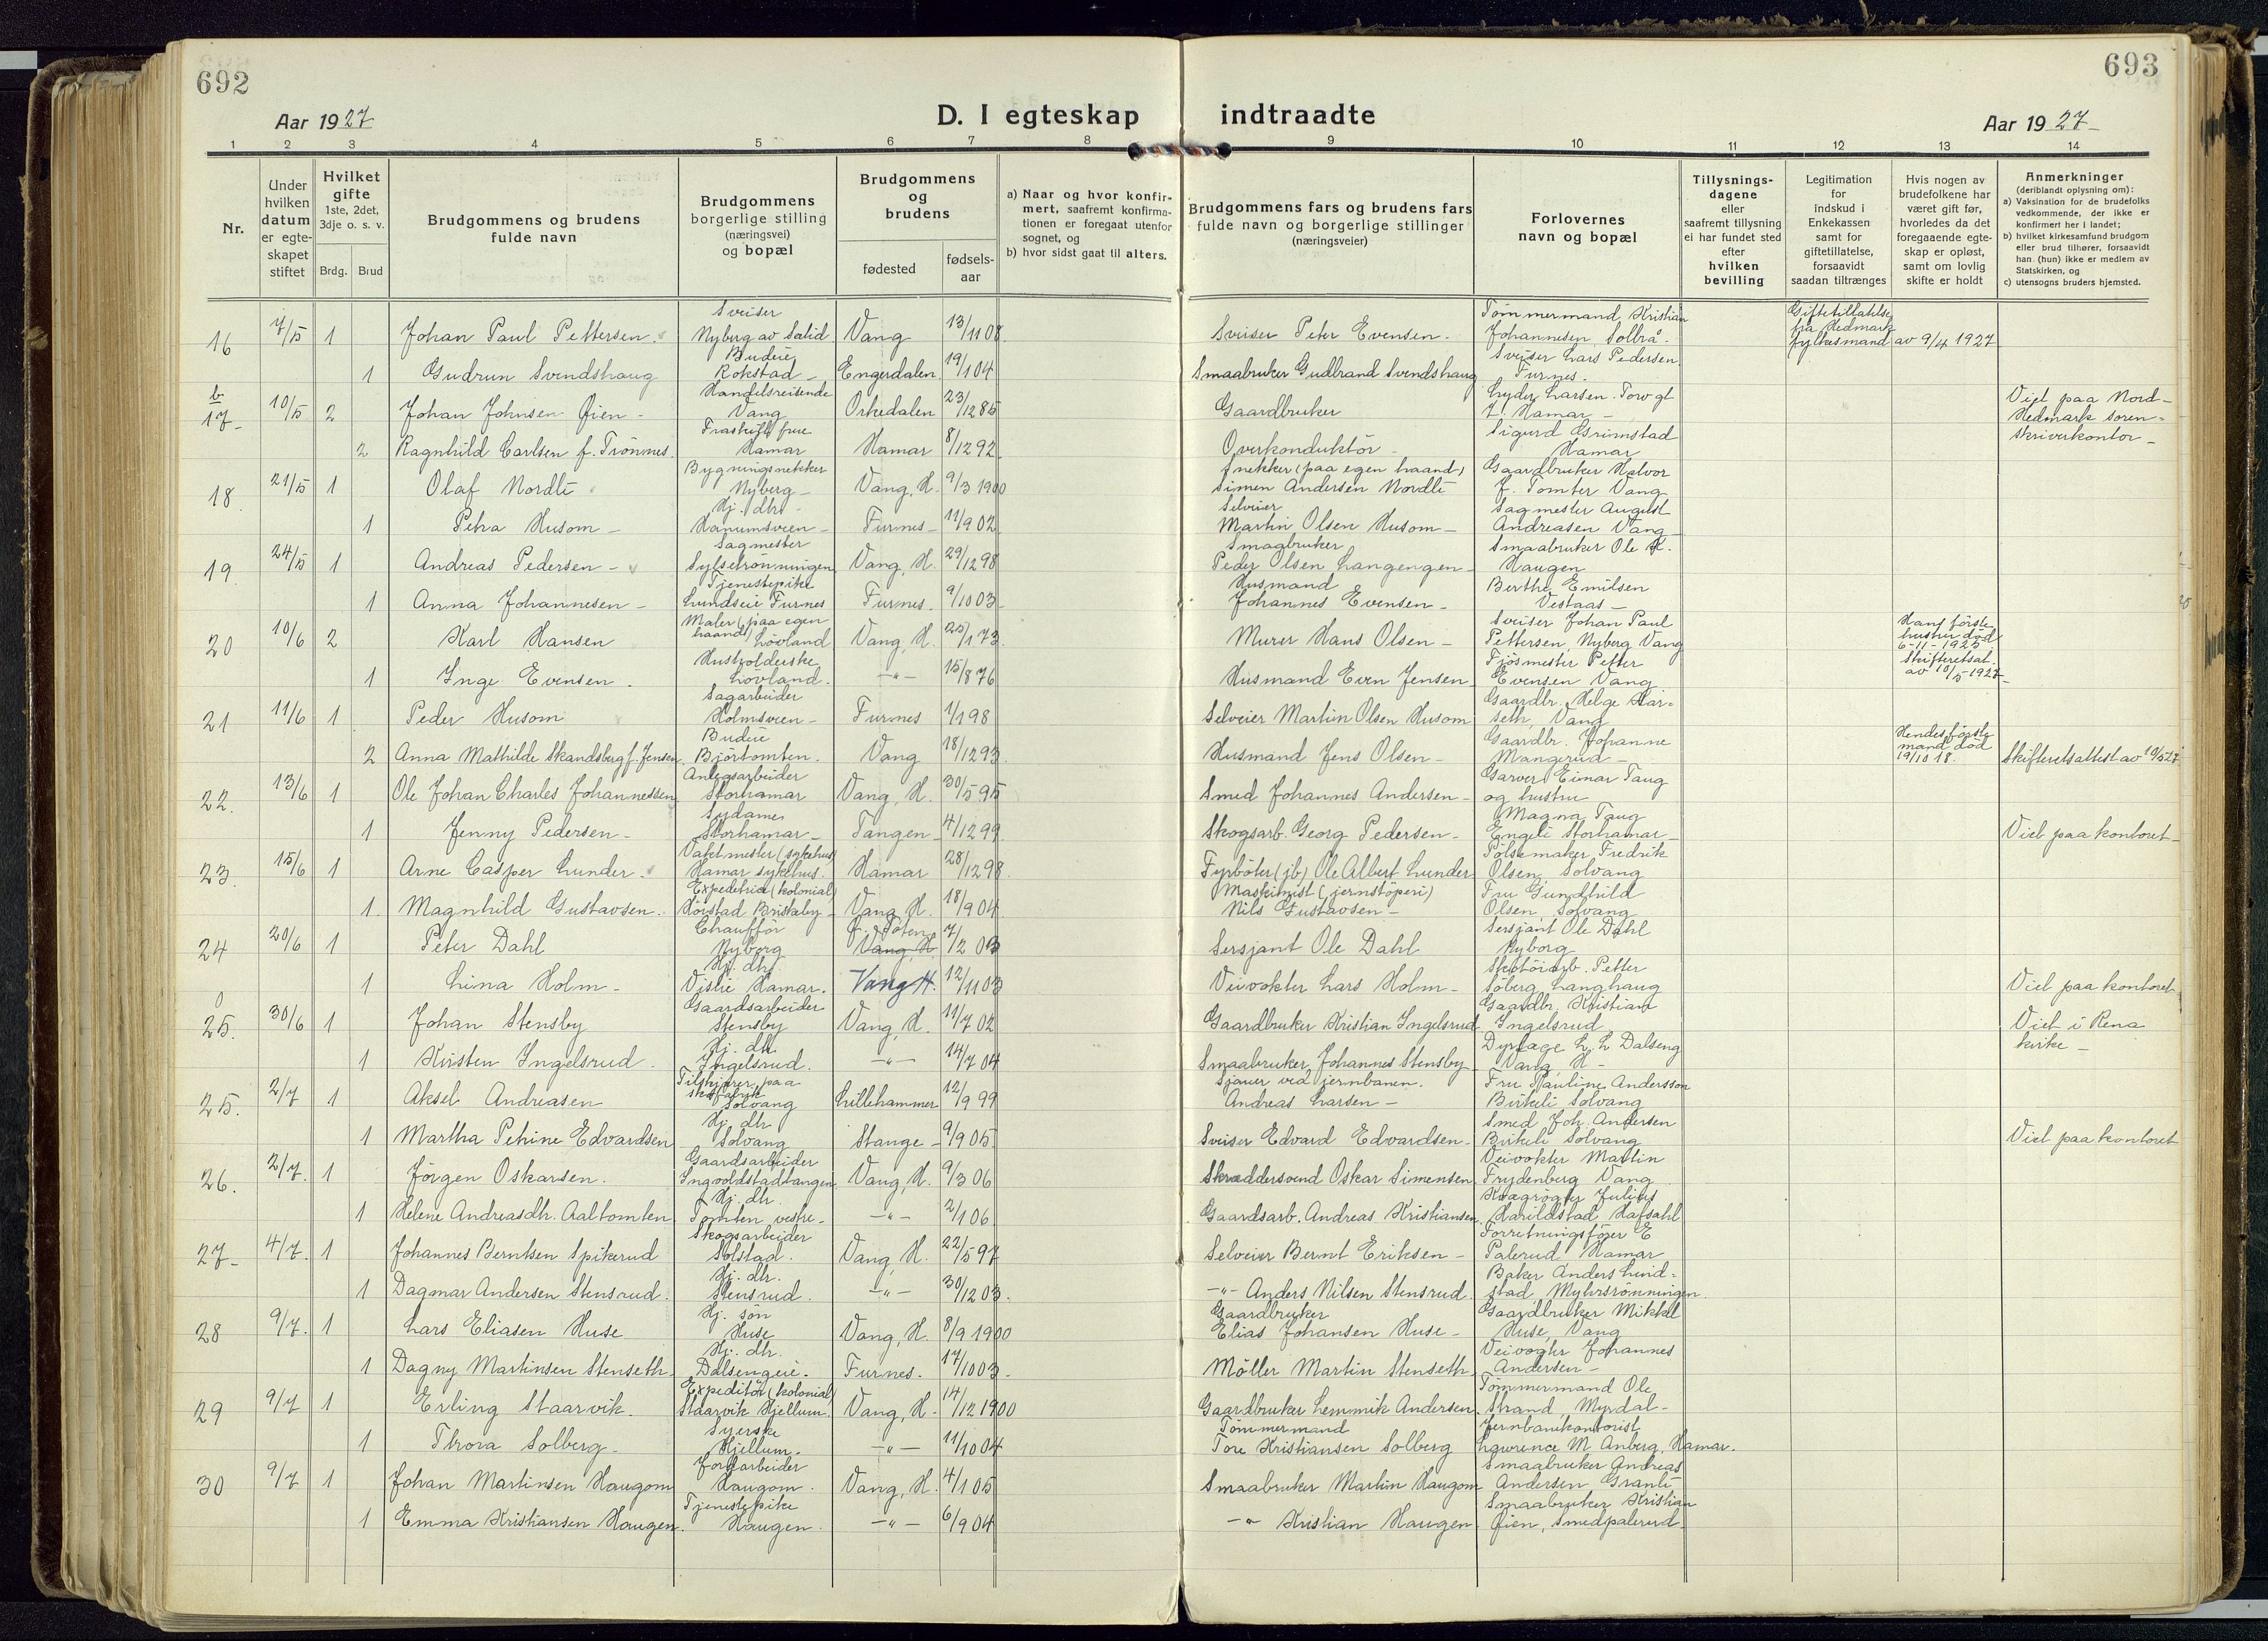 692
693
Aar 1927
D. I egteskap
indtraadte
Aar 1927
1 2 3 4 5 6 7 8 9 10 11 12 13 14
Nr.
Under hvilken datum er egte-skapet stiftet
Hvilket gifte 1ste, 2det, 3dje o. s. v.
Brdg. Brud
Brudgommens og brudens fulde navn
Brudgommens borgerlige stilling (næringsvei) og bopæl
Brudgommens og brudens
fødested
fødsels-aar
a) Naar og hvor konfir-mert, saafremt konfirma-tionen er foregaat utenfor sognet, og
b) hvor sidst gaat til alters.
Brudgommens fars og brudens fars fulde navn og borgerlige stillinger (næringsveier)
Forlovernes navn og bopæl
Tillysnings-dagene eller saafremt tillysning ei har fundet sted efter hvilken bevilling
Legitimation for indskud i Enkekassen samt for giftetillatelse, forsaavidt saadan tiltrænges
Hvis nogen av brudefolkene har været gift før, hvorledes da det foregaaende egte-skap er opløst, samt om lovlig skifte er holdt
Anmerkninger (deriblandt oplysning om):
a) Vaksination for de brudefolks vedkommende, der ikke er konfirmert her i landet;
b) hvilket kirkesamfund brudgom eller brud tilhører, forsaavidt han (hun) ikke er medlem av Statskirken, og
c) utensogns bruders hjemsted.
16 7/5 1 Johan Paul Pettersen Sveiser Nyberg av Sælid Vang 13/11 08 Sveiser Peter Evensen Tømmermand Kristian Johannesen Solbrå Giftetillatelse fra Hedmark fylkesmand av 9/4 1927
1 Gudrun Svendshaug Budeie Rokstad Engerdalen 19/1 04 Smaabruker Gudbrand Svendshaug Sveiser Lars Pedersen Furnes
b
17 10/5 2 Johan Johnsen Øien Handelsreisende Vang Orkedalen 23/12 85 Gaardbruker Lyder Larsen. Torvgt 7. Hamar Viet paa Nord-Hedmark soren-skriverkontor
2 Ragnhild Carlsen f. Trønnes Fraskilt frue Hamar Hamar 8/12 92 Overkonduktør Sigurd Grimstad Hamar
18 21/5 1 Olaf Nordli Bygningssnekker Nyberg Vang, H. 9/3 1900 Snekker (paa egen haand) Simen Andersen Nordli Gaardbruker Halvor f. Tomter Vang
1 Petra Husom Hj. dtr. Hanumsveen Furnes 11/9 02 Selveier Martin Olsen Husom Sagmester August Andreasen Vang
19 24/5 1 Andreas Pedersen Sagmester Sylsetrønningen Vang, H. 29/12 98 Smaabruker Peder Olsen Langengen Smaabruker Ole K. Haugen
1 Anna Johannesen Tjenestepike Lundseie Furnes Furnes 9/10 03 Husmand Johannes Evensen Berthe Emilsen Vestaas
20 10/6 2 Karl Hansen Maler (paa egen haand) Løvland Vang, H. 25/1 73 Murer Hans Olsen Sveiser Johan Paul Pettersen, Nyberg Vang Hans første hustru død 6-11-1925 Skifteretsat. av 18/5-1927
1 Inge Evensen Husholderske Løvland -"- 15/8 76 Husmand Even Jensen Fjøsmester Petter Evensen Vang
21 11/6 1 Peder Husom Sagarbeider Holmsveen Furnes 1/1 98 Selveier Martin Olsen Husom Gaardbr. Helge Kaar-seth, Vang
2 Anna Mathilde Skandsberg f. Jensen Budeie Bjørtomten Vang 18/12 93 Husmand Jens Olsen Gaardbr. Johanne Mangerud Hendes første mand død 19/10 18. Skifteretsattest av 10/5 27
22. 13/6 1 Ole Johan Charles Johannessen Anlegsarbeider Storhamar Vang, H. 30/5 95 Smed Johannes Andersen Garver Einar Taug og hustru
1 Jenny Pedersen Sydame Storhamar Tangen 4/12 99 Skogsarb. Georg Pedersen Magna Taug Engeli Storhamar Viet paa kontoret
23. 15/6 1 Arne Casper Lunder Vaktmester (sykehus) Hamar sykehus. Hamar 28/12 98 Fyrbøter (jb) Ole Albert Lunder Pølsemaker Fredrik Olsen, Solvang
1 Magnhild Gustavsen Expeditrice (kolonial) Hørstad Briskeby Vang H. 18/9 04 Maskinist (jernstøperi) Nils Gustavsen Fru Gundhild Olsen, Solvang
24 20/6 1 Peter Dahl Chauffør Nyborg Ø. Toten Vang H 7/2 03 Sersjant Ole Dahl Sersjant Ole Dahl Nyborg
1 Lina Holm Hj. dtr. Vislie Hamar. Vang H. 12/11 03 Veivokter Lars Holm Skotøiarb. Petter Søberg Langhaug Viet paa kontoret
0
25. 30/6 1 Johan Stensby Gaardsarbeider Stensby Vang, H. 11/7 02 Gaardbruker Kristian Ingelsrud Gaardbr. Kristian Ingelsrud Viet i Rena kirke
1 Kirsten Ingelsrud Hj. dtr Ingelsrud. -"- 14/7 04 Smaabruker Johannes Stensby Dyrlæge L. L. Dalseng Vang H
25. 2/7 1 Aksel Andreasen Tilskjærer paa skofabrik Solvang Lillehammer 12/9 99 Sjauer ved jernbanen. Andreas Larsen Fru Pauline Andersson Birkeli Solvang
1 Martha Petrine Edvardsen Hj. dtr Solvang Stange 9/9 05 Sveiser Edvard Edvardsen Smed Joh. Andersen Birkeli Solvang Viet paa kontoret
26. 2/7. 1 Jørgen Oskarsen. Gaardsarbeider Ingvoldstadtangen Vang, H. 9/3 06 Skræddersvend Oskar Simensen Veivokter Martin Frydenberg Vang
1 Helene Andreasdtr. Aaltomten Hj. dtr. Tomten vestre -"- 2/1 06 Gaardsarb. Andreas Kristiansen Kvægrøgter Julius Harildstad Hafsahl
27 4/7. 1 Johannes Berntsen Spikerud Skogsarbeider Solstad. Vang, H. 22/5 97 Selveier Bernt Eriksen Forretningsfører E Palerud Hamar
1 Dagmar Andersen Stensrud. Hj. dtr. Stensrud. -"- 30/12 03. -"- Anders Nilsen Stensrud. Baker Anders Lund-stad Myhrsrønningen
28 9/7. 1 Lars Eliasen Huse Hj. søn Huse Vang, H. 8/9 1900 Gaardbruker Elias Johansen Huse Gaardbruker Mikkel Huse, Vang
1 Dagny Martinsen Stenseth. Hj. dtr. Dalsengeie. Furnes. 17/10 03. Møller Martin Stenseth Veivogter Johannes Andersen
29 9/7 1 Erling Staarvik. Expeditør (kolonial) Staarvik Hjellum. Vang, H. 14/12 1900 Gaardbruker Lemmik Andersen. Tømmermand Ole Strand Myrdal
1 Thora Solberg Syerske Hjellum. -"- 11/10 04 Tømmermand Tore Kristiansen Solberg Jernbanekontorist Lawrence M. Anberg, Hamar.
30 9/7 1 Johan Martinsen Haugom Jordarbeider Haugom. Vang, H. 4/1 05 Smaabruker Martin Haugom Smaabruker Andreas Andersen Granli
1 Emma Kristiansen Haugen. Tjenestepike Haugen. -"- 6/9 04 -"- Kristian Haugen Smaabruker Kristian Øien, Smedpalerud.